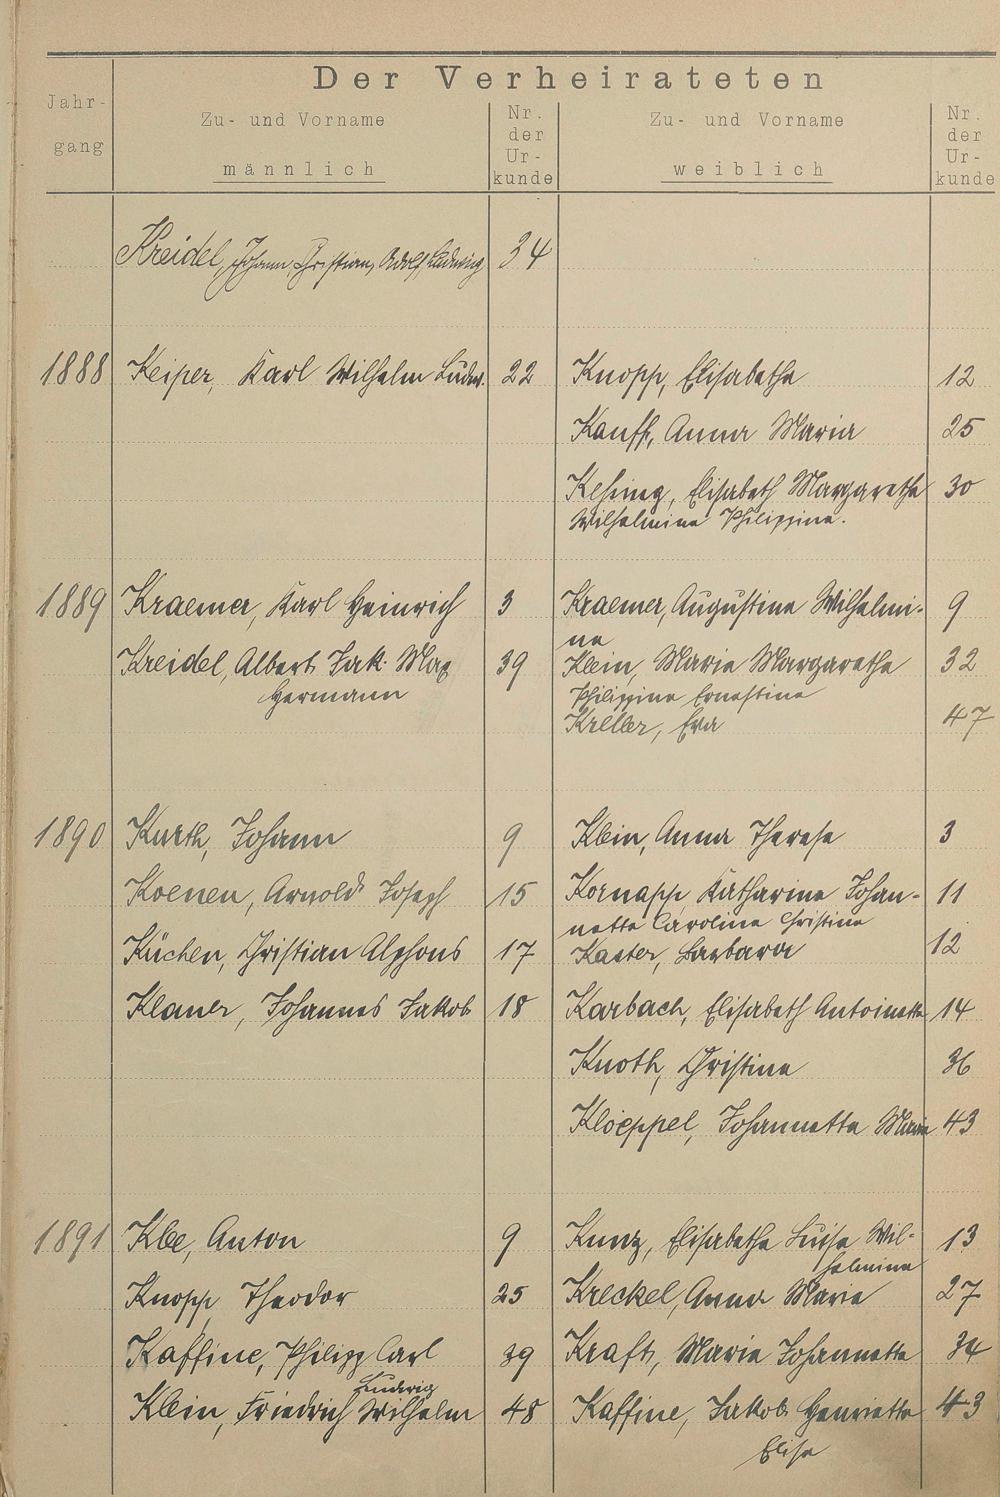 Der Verheirateten
Jahr-
gang
Zu- und Vorname
männlich
Nr.
der
Ur-
kunde
Zu- und Vorname
weiblich
Nr.
der
Ur-
kunde
Kreidel, Johann, Christian, Adolf, Ludwig 34
1888 Keiper, Karl Wilhelm Ludw. 22 Knopp, Elisabetha 12
Kauff, Anna Maria 25
Keßing, Elisabeth Margaretha 30
Wilhelmine Philippine.
1889 Kraemer, Karl Heinrich 3 Kraemer, Augustine Wilhelmi- 9
ne
Kreidel, Albert Jak. Max 39 Klein, Maria Margaretha 32
Hermann Philippine Ernestine
Kreller, Eva 47
1890 Kurth, Johann 9 Klein, Anna Therese 3
Koenen, Arnold Joseph 15 Kornapp Katharine Johan- 11
nette Caroline Christine
Küchen, Christian Alphons 17 Kaster, Barbara 12
Klauer, Johannes Jakob 18 Karbach, Elisabeth Antoinette 14
Knoth, Christine 36
Kloeppel, Johannetta Maria 43
1891 Klee, Anton 9 Kunz, Elisabetha Luise Wil- 13
helmine
Knopp Theodor 25 Kreckel, Anna Maria 27
Kaffine, Philipp Carl 39 Kraft, Maria Johannetta 34
Ludwig
Klein, Friedrich Wilhelm 48 Kaffine, Jakob Henriette 43
Elise